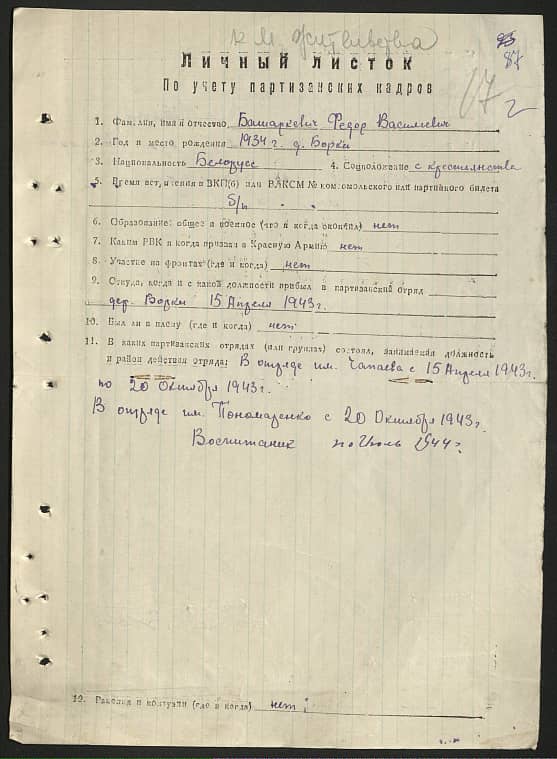 87
17
Личный листок
По учету партизанских кадров
1. Фамилия, имя и отчество Башаркевич Федор Васильевич
2. Год и место рождения 1934 г. д. Борки
3. Национальность Белорусс 4. Соцположение с крестьянства
5. Время вступления в ВКП(б) или ВЛКСМ № комсомольского или партийного билета
б/п
6. Образование: общее и военное (что и когда окончил) нет
7. Каким РВК и когда призван в Красную Армию нет
8. Участие на фронтах (где и когда) нет
9. Откуда, когда и с какой должности прибыл в партизанский отряд
дер. Борки 15 Апреля 1943 г.
10. Был ли в плену (где и когда) нет
11. В каких партизанских отрядах (или группах) состоял, занимаемая должность
и район действия отряда: В отряде им. Чапаева с 15 Апреля 1943 г.
по 20 Октября 1943 г.
В отряде им. Пономаренко с 20 Октября 1943 г.
Воспитаник по Июль 1944 г.
12. Ранения и контузии (где и когда) нет